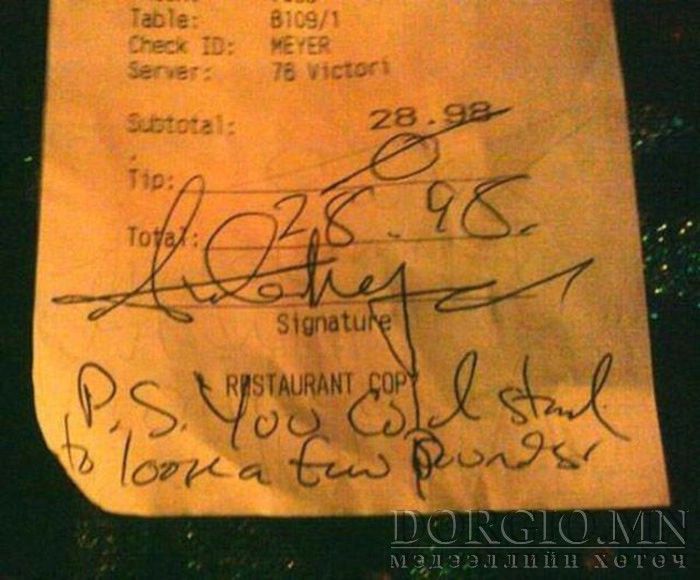 Table: B109/1
Check ID: MEYER
Server: 78 Victori
Subtotal: 28.98
Tip: 0
Total: 28.98.
Signature
RESTAURANT COPY
P.S. You cold stand
to loose a few pounds.
DORGIO.MN
МЭДЭЭЛЛИЙН ХӨТӨЧ